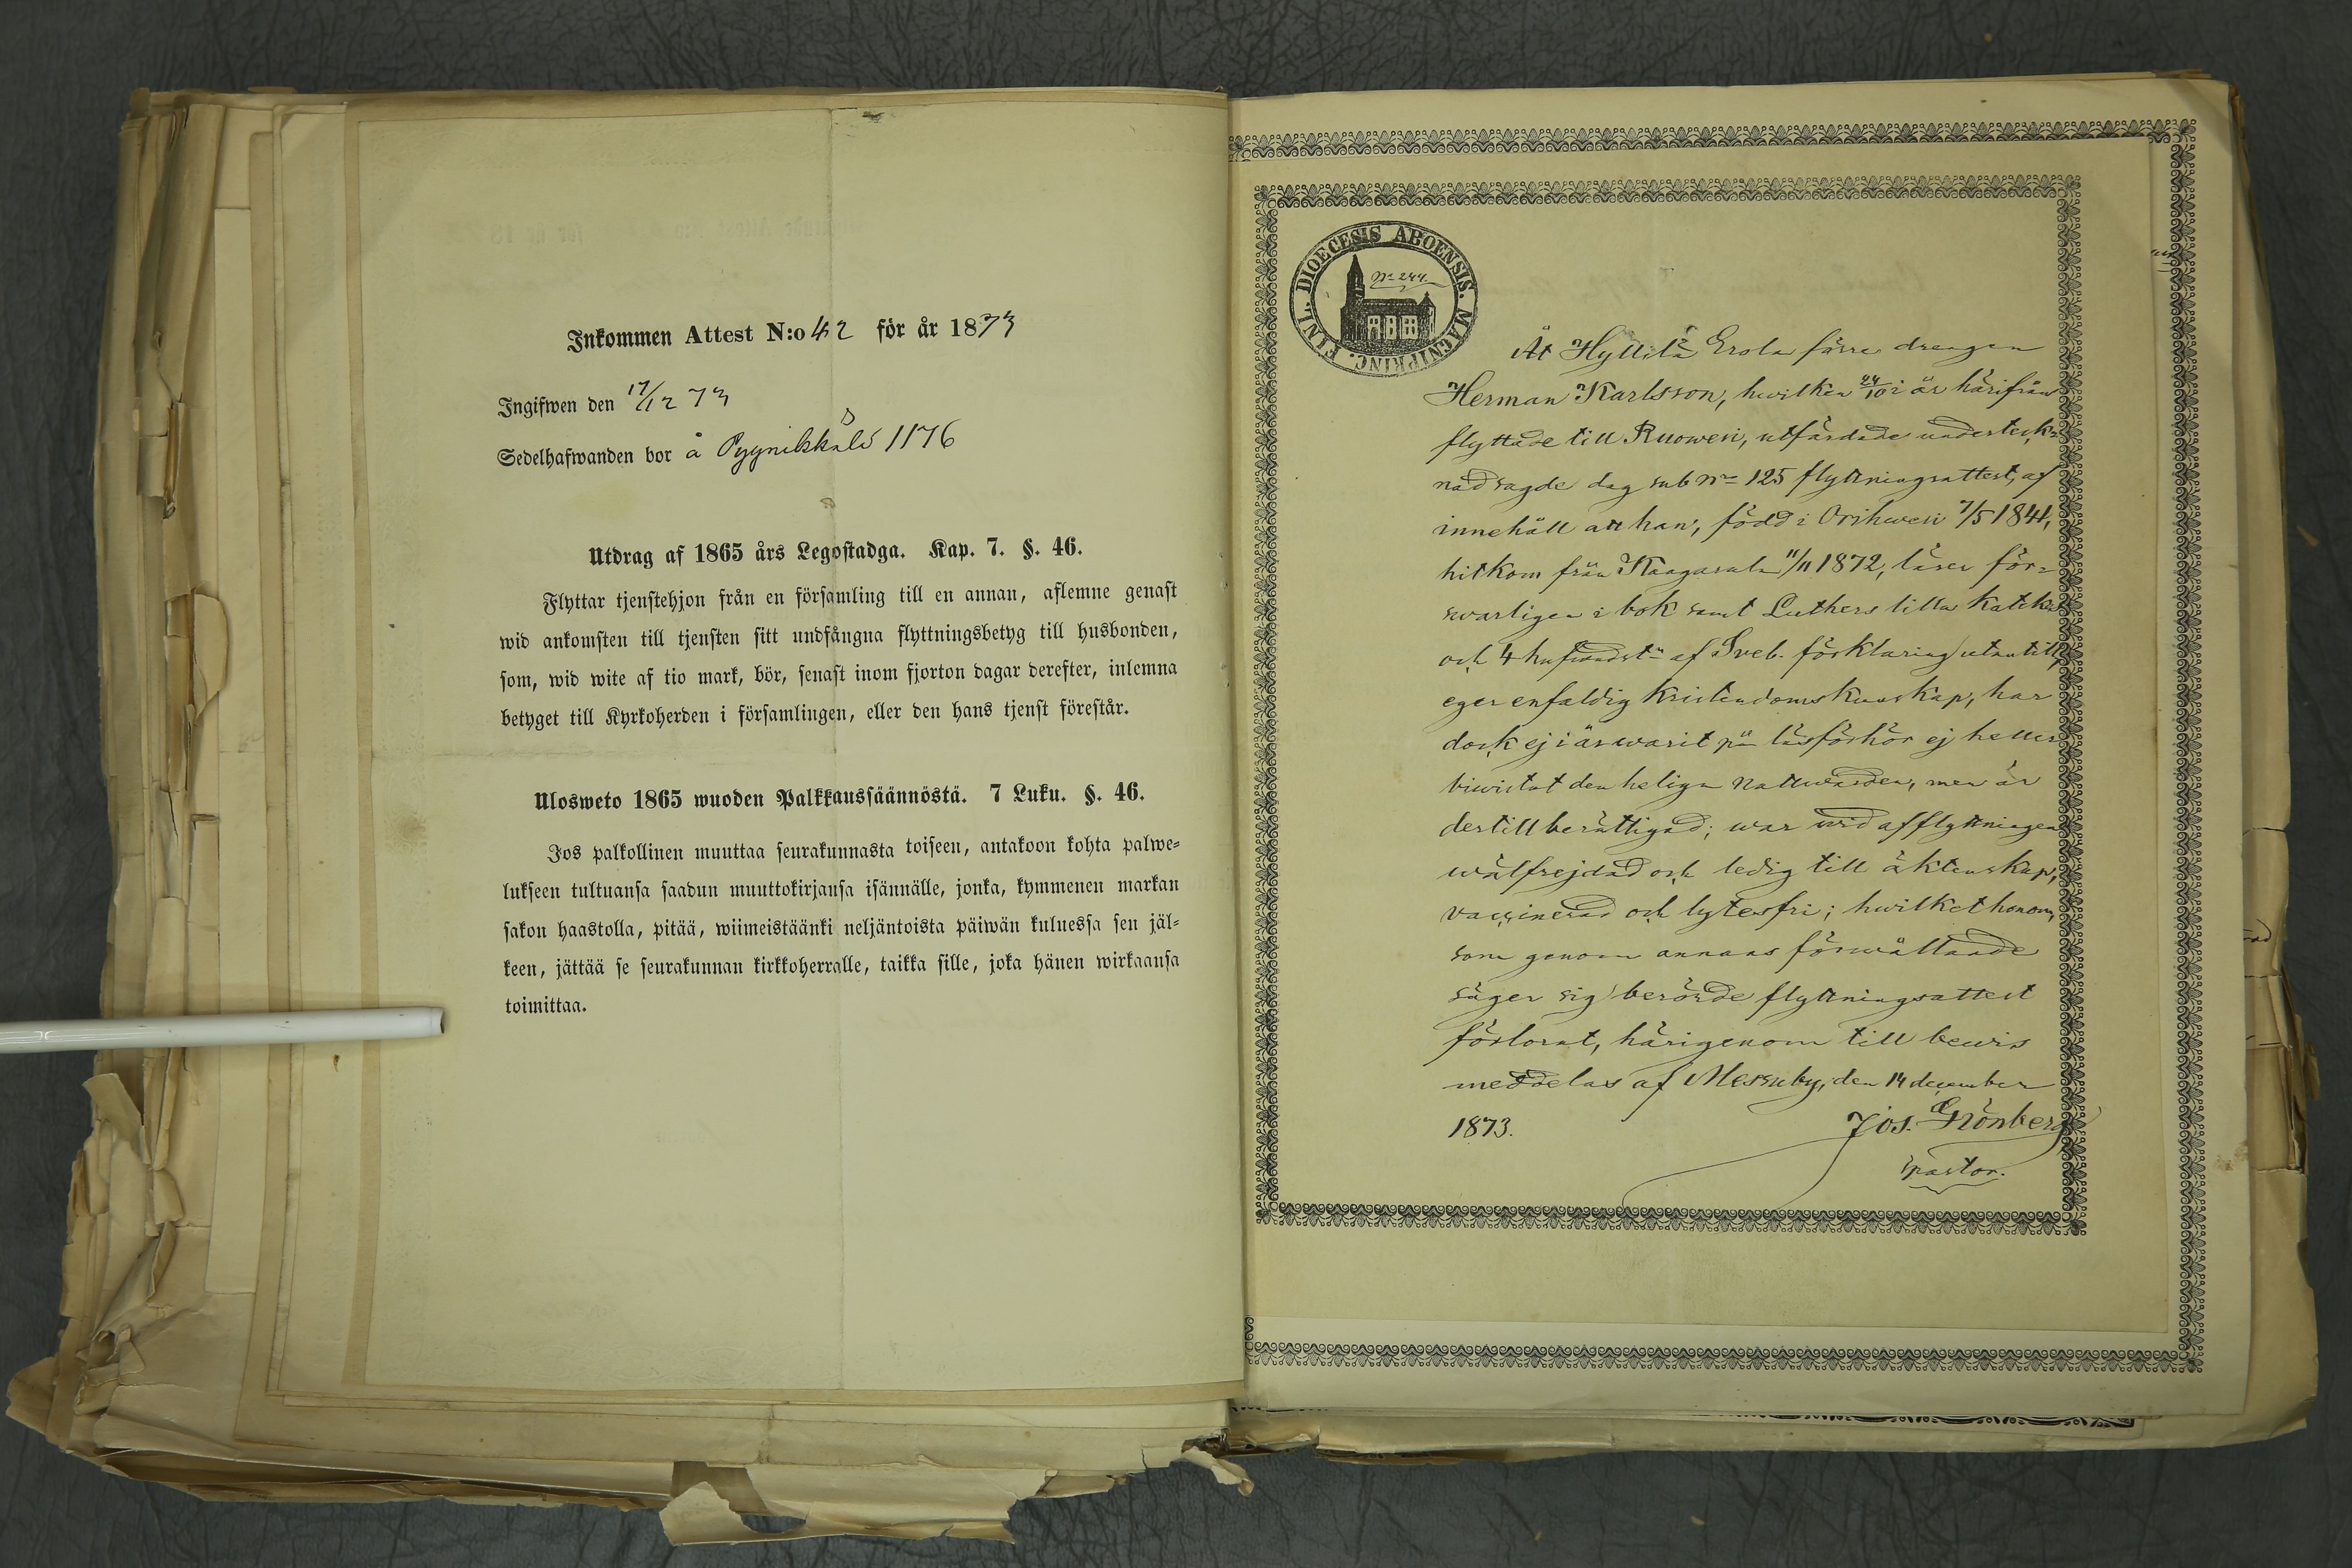 Inkommen Attest N:o 42 för år 1873
Ingifwen den 17/12 73
Sedelhafwanden bor å Pyynikkälä 1176
Utdrag af 1865 års Legostadga. Kap. 7. §. 46.
Flyttar tjenstehjon från en församling till en annan, aflemne genast
wid ankomsten till tjensten sitt undfångna flyttningsbetyg till husbonden,
som, wid wite af tio mark, bör, senast inom fjorton dagar derefter, inlemna
betyget till Kyrkoherden i församlingen, eller den hans tjenst förestår.
Ulosweto 1865 wuoden Palkkaussäännöstä. 7 Luku. §. 46.
Jos palkollinen muuttaa seurakunnasta toiseen, antakoon kohta palwe-
lukseen tultuansa saadun muuttokirjansa isännälle, jonka, kymmenen markan
sakon haastolla, pitää, wiimeistäänki neljäntoista päiwän kuluessa sen jäl-
keen, jättää se seurakunnan kirkkoherralle, taikka sille, joka hänen wirkaansa
toimittaa.
DIOECESIS ABOENSIS. MAGNIPRINC. FINL.
No 244
Åt Hyllilä Erola förre drengen
Herman Karlsson, hwilken 24/10 i år härifrån
flyttade till Ruowesi, utfärdade underteck-
nad sagde dag sub No 125 flyttningsattest, af
innehåll att han, född i Orihwesi 7/5 1841,
hitkom från Kangasala 11/11 1872, läser för-
swarligen i bok samt Luthers lilla Kateches
och 4 hufwudst. af Sveb. förklaring utantill,
eger enfaldig kristendomskunskap, har
dock ej i år warit på läsförhör ej heller
biwistat den heliga Nattwarden, men är
dertill berättigad; war wid afflyttningen
wälfrejdad och ledig till äktenskap,
vaccinerad och lytesfri; hwilket honom,
som genom annans förwållande
säger sig berörde flyttningsattest
förlorat, härigenom till bewis
meddelas af Messuby, den 14 december
1873. Jos. Grönberg
pastor.